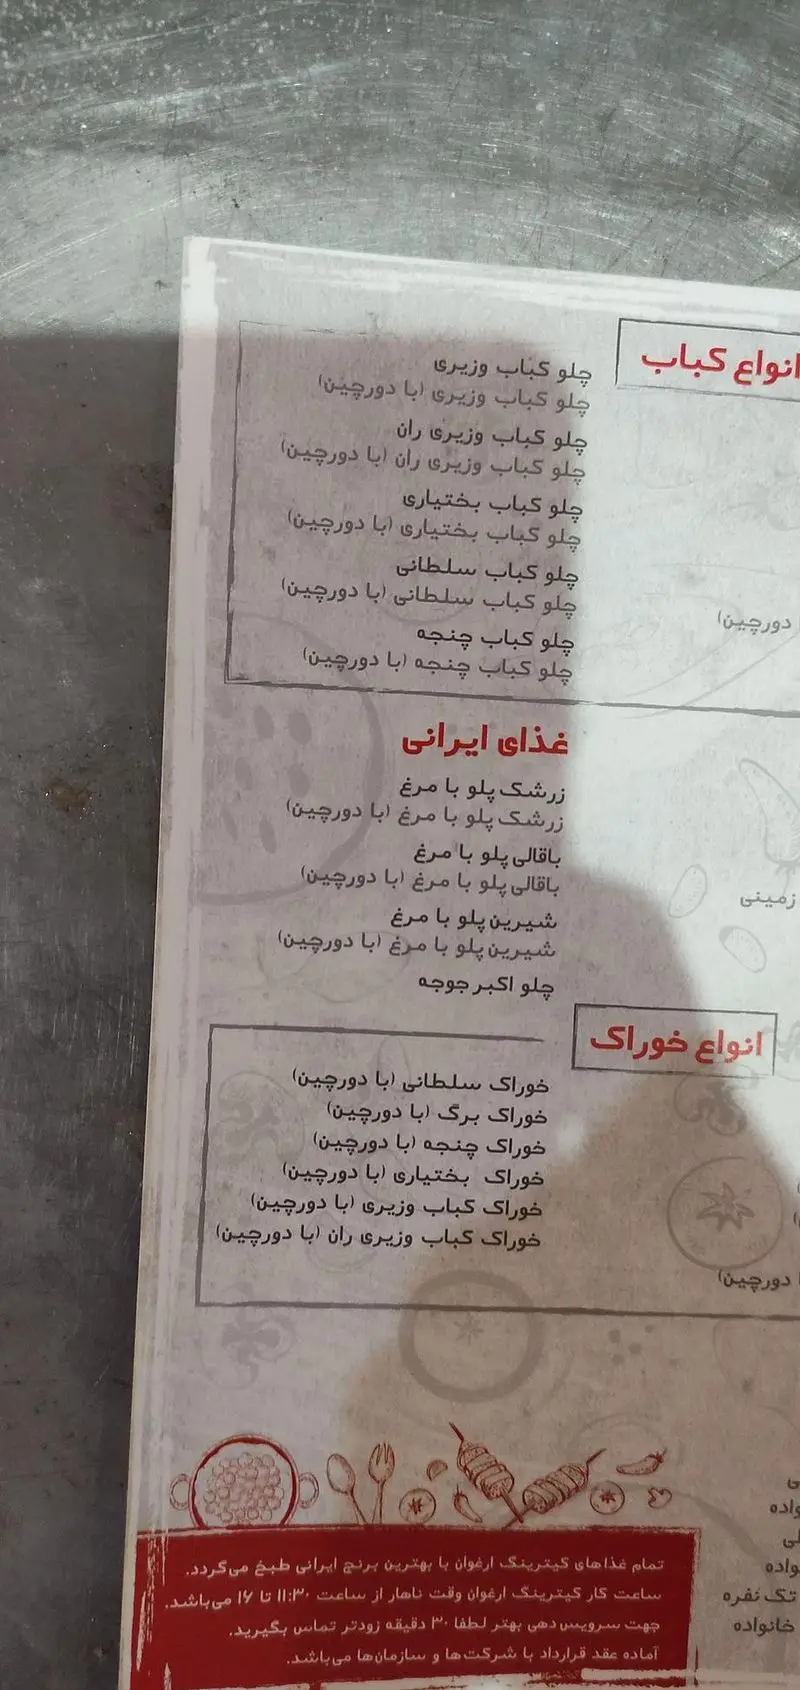 انواع کباب
چلو کباب وزیری
چلو کباب وزیری (با دورچین)
چلو کباب وزیری ران
چلو کباب وزیری ران (با دورچین)
چلو کباب بختیاری
چلو کباب بختیاری (با دورچین)
چلو کباب سلطانی
چلو کباب سلطانی (با دورچین)
دورچین)
چلو کباب چنجه
چلو کباب چنجه (با دورچین)
غذای ایرانی
زرشک پلو با مرغ
زرشک پلو با مرغ (با دورچین)
باقالی پلو با مرغ
باقالی پلو با مرغ (با دورچین)
زمینی
شیرین پلو با مرغ
شیرین پلو با مرغ (با دورچین)
چلو اکبر جوجه
انواع خوراک
خوراک سلطانی (با دورچین)
خوراک برگ (با دورچین)
خوراک چنجه (با دورچین)
خوراک بختیاری (با دورچین)
خوراک کباب وزیری (با دورچین)
خوراک کباب وزیری ران (با دورچین)
دورچین)
تک نفره
خانواده
تمام غذاهای کیترینگ ارغوان با بهترین برنج ایرانی طبخ می‌گردد.
ساعت کار کیترینگ ارغوان وقت ناهار از ساعت ۱۱:۳۰ تا ۱۶ می‌باشد.
جهت سرویس دهی بهتر لطفا ۳۰ دقیقه زودتر تماس بگیرید.
آماده عقد قرارداد با شرکت‌ها و سازمان‌ها می‌باشد.